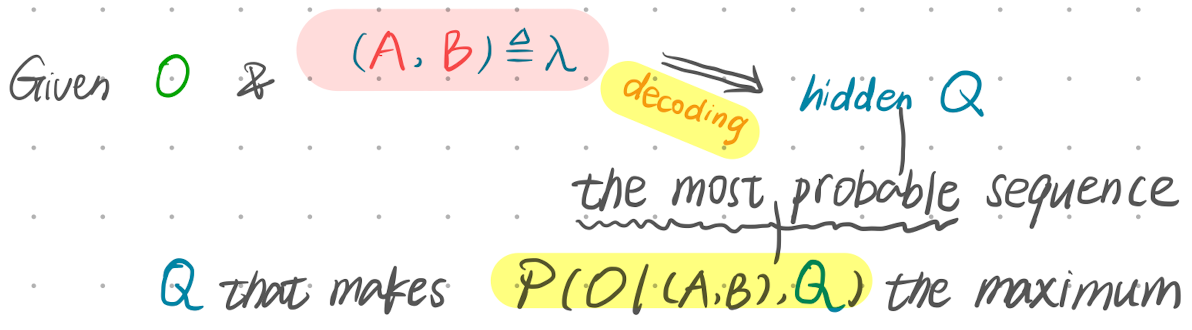 Given O & (A, B) ≜ λ ⟹ hidden Q
decoding
the most probable sequence
Q that makes P(O|(A,B),Q) the maximum